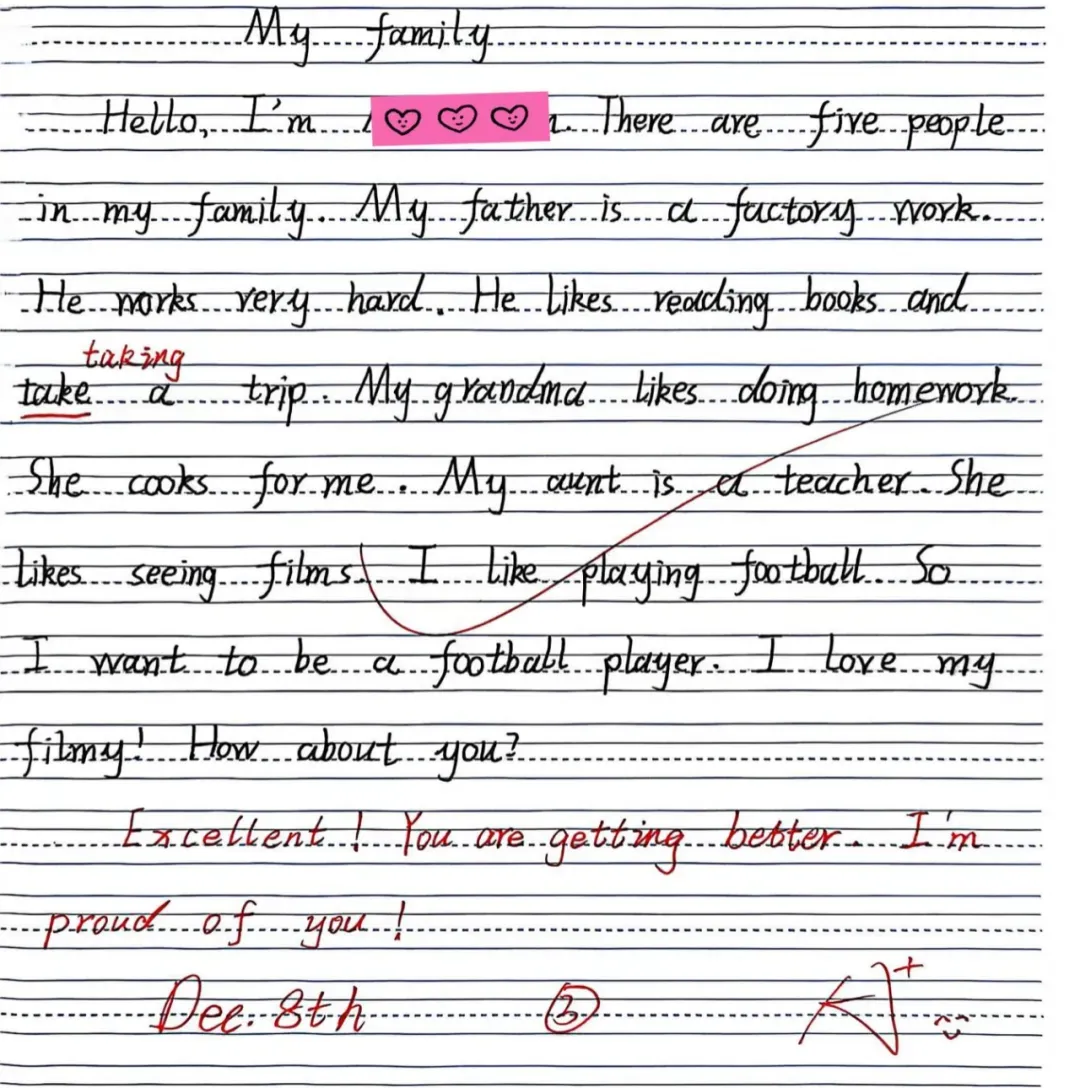 My family
Hello, I'm . There are five people
in my family. My father is a factory work.
He works very hard. He likes reading books and
taking
take a trip. My grandma likes doing homework.
She cooks for me. My aunt is a teacher. She
likes seeing films. I like playing football. So
I want to be a football player. I love my
filmy! How about you?
Excellent! You are getting better. I'm
proud of you!
Dec. 8th ③ A+